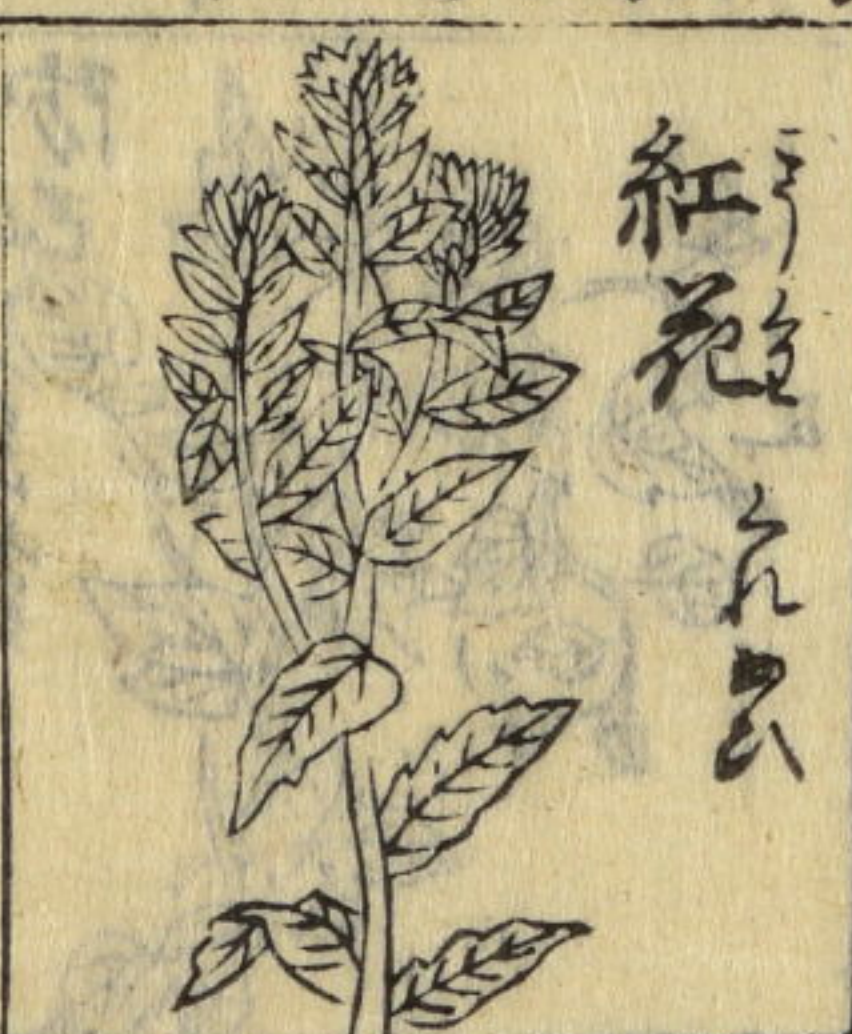 紅花
こうくわ
くれなゐ